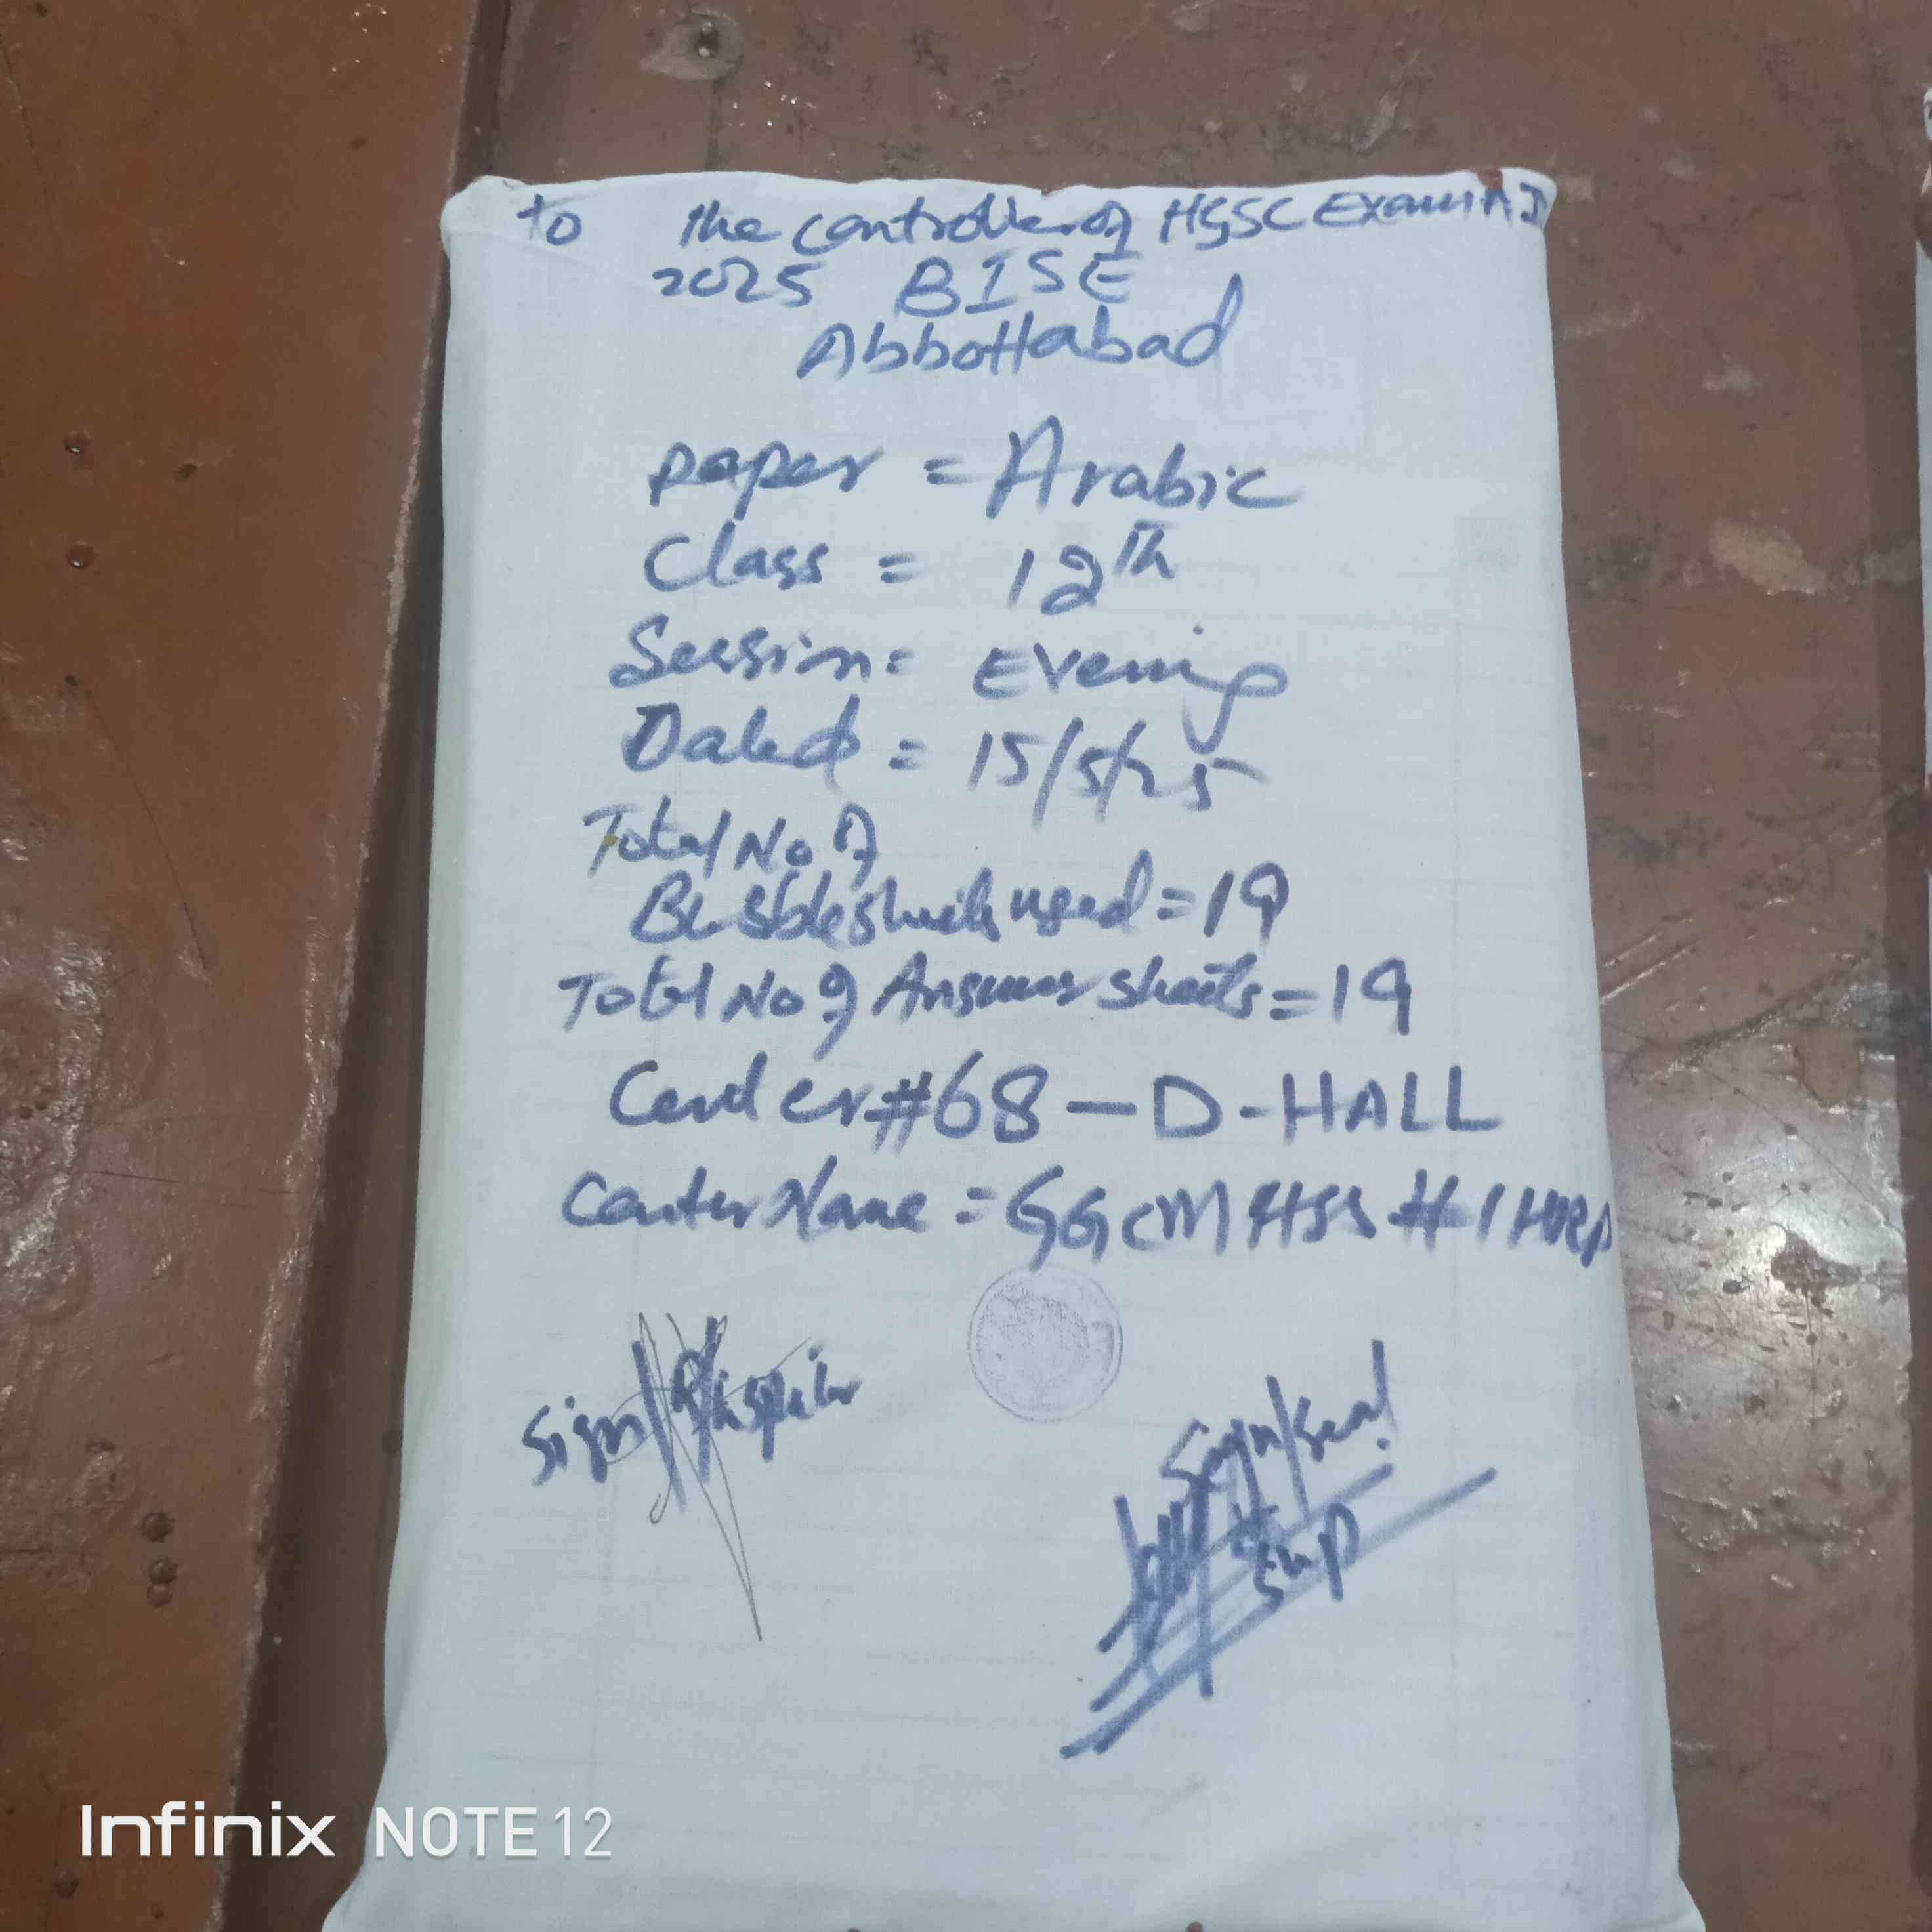 to the controller of HSSC Exam A I
2025 BISE
Abbottabad
paper = Arabic
Class = 12th
Session = Evening
Dated = 15/5/25
Total No of
Bubble sheets used = 19
Total No of Answer sheets = 19
Center #68 - D - HALL
Center Name = GGCM HSS #1 HRP
Sign/
Sign/Seal
Sup
Infinix NOTE 12